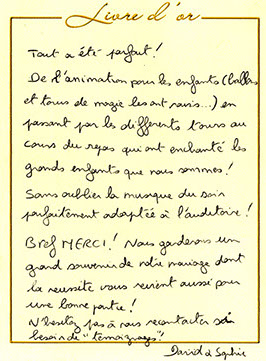 Livre d'or
Tout a été parfait!
De l'animation pour les enfants (ballons
et tours de magie les ont ravis...) en
passant par les différents tours au
cours du repas qui ont enchanté les
grands enfants que nous sommes!
Sans oublier la musique du soir
parfaitement adaptée à l'auditoire!
Bref MERCI! Nous garderons un
grand souvenir de notre mariage dont
la réussite vous revient aussi pour
une bonne partie!
N'hésitez pas à nous recontacter si
besoin de "témoignages"
David & Sophie